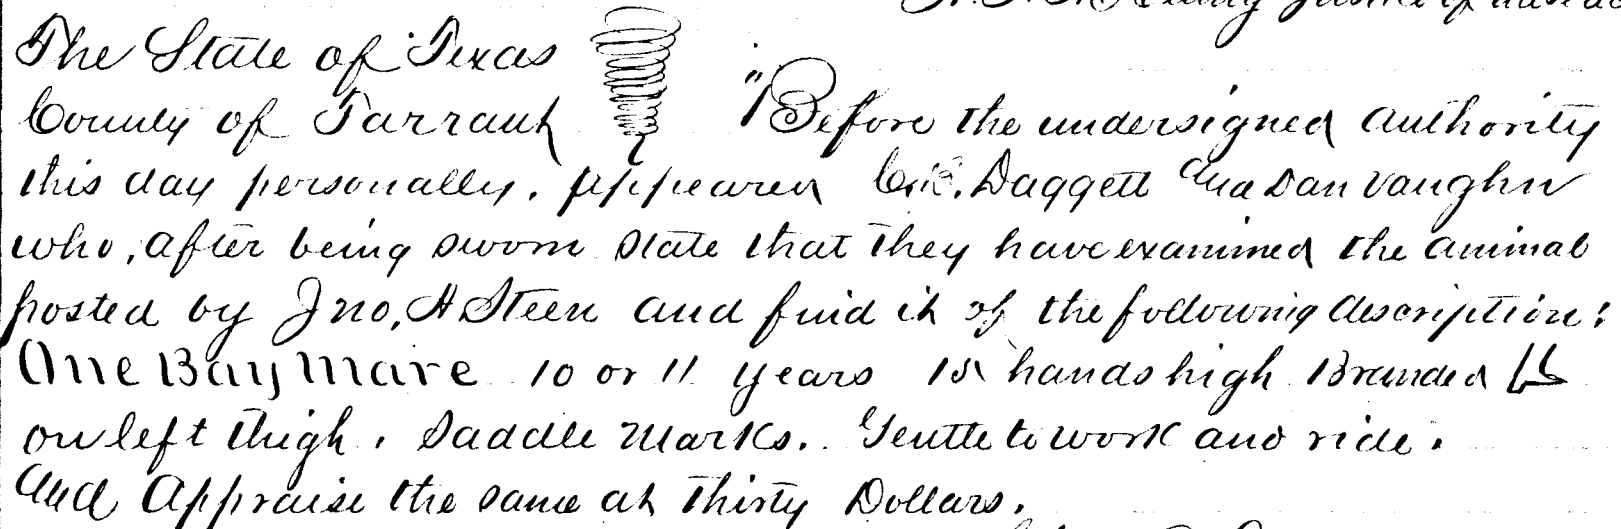 The State of Texas
County of Tarrant "Before the undersigned authority
this day personally, appeared Daggett and Dan Vaughn
who, after being sworn state that they have examined the animal
posted by Jno, H Steen and find it of the following description:
One Bay Mare 10 or 11 years 15 hands high Branded
on left thigh. Saddle Marks. Gentle to work and ride.
and Appraise the same at Thirty Dollars.